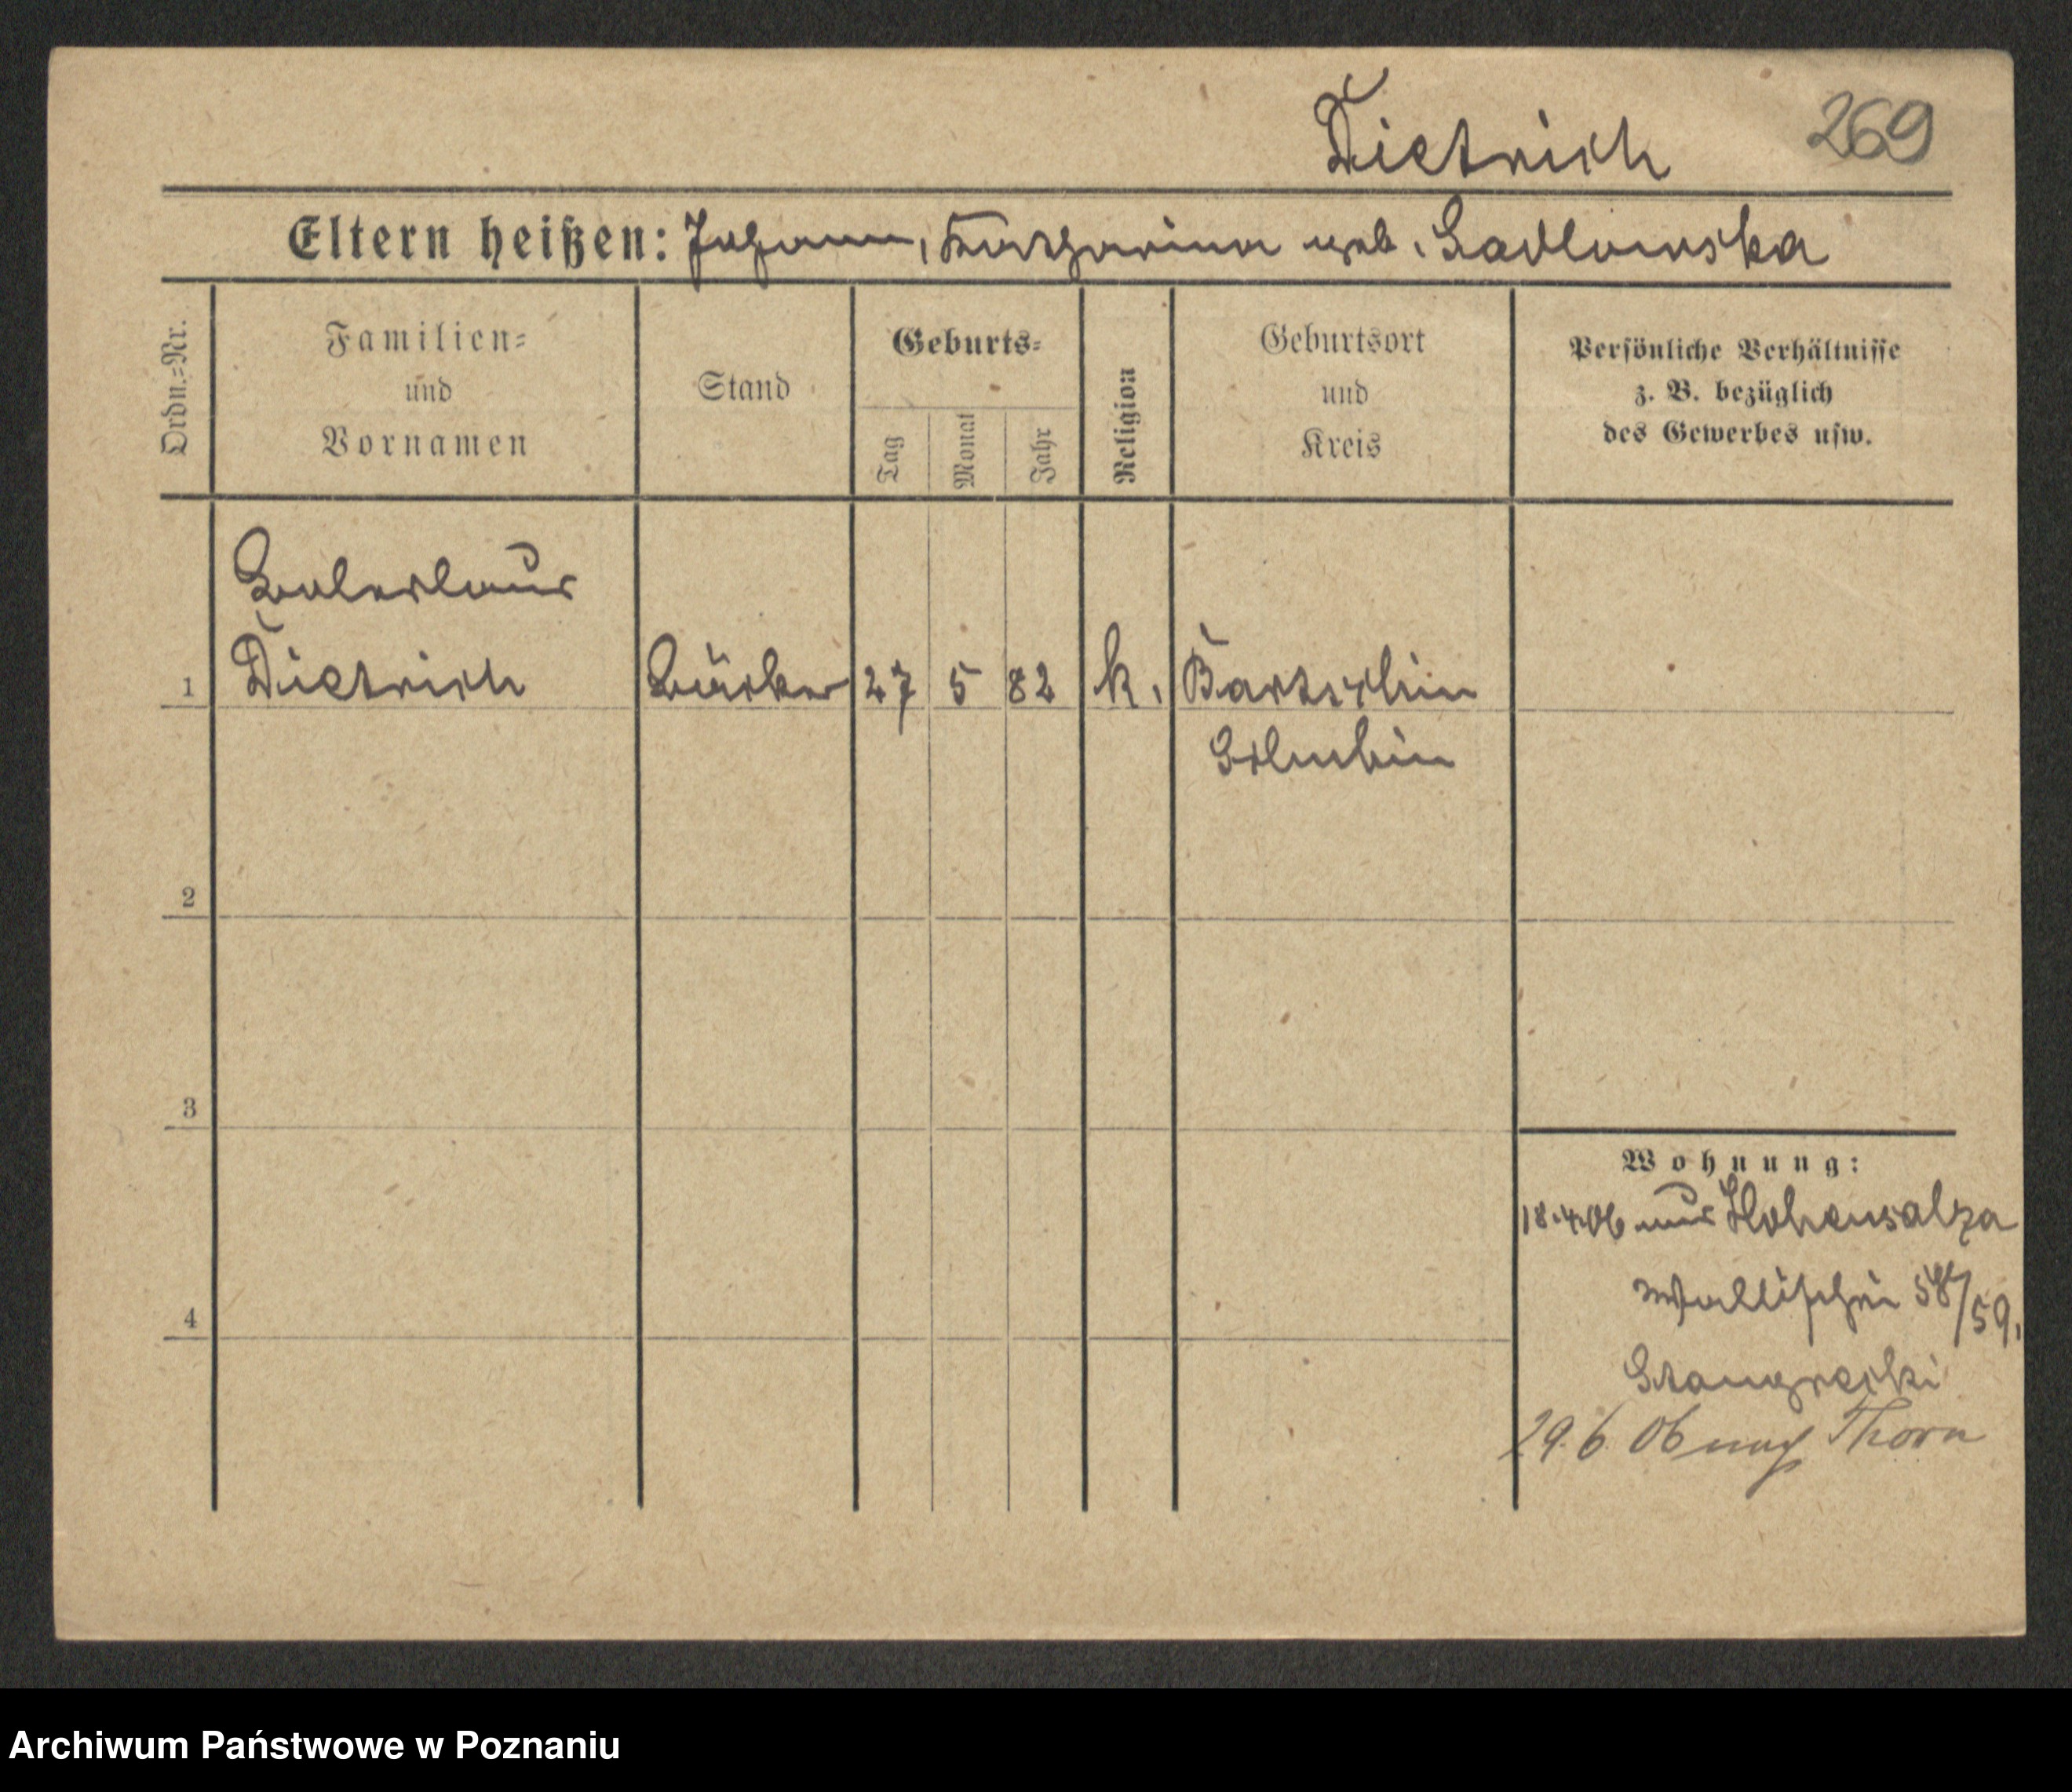 Dietrich 269
Eltern heißen: Johann, Katharina geb. Sadlowska
Ordn.=Nr.
Familien=
und
Vornamen
Stand
Geburts=
Tag
Monat
Jahr
Religion
Geburtsort
und
Kreis
Persönliche Verhältnisse
z. B. bezüglich
des Gewerbes usw.
Boleslaus
1 Dietrich Bäcker 27 5 82 k. Bartschin
Schubin
2
3
4
Wohnung:
18.4.06 aus Hohensalza
Wallischei 58/59.
29.6.06 nach Thorn
Archiwum Państwowe w Poznaniu